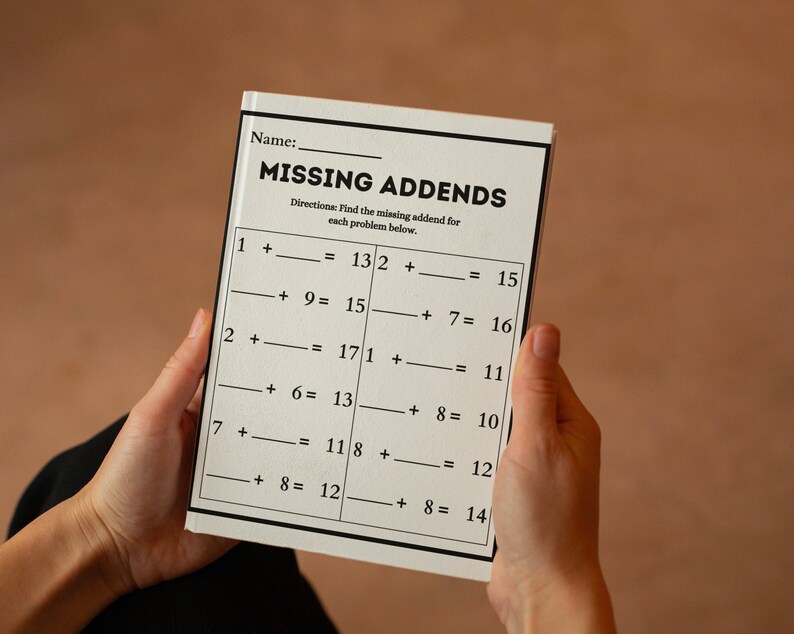 Name: __________
MISSING ADDENDS
Directions: Find the missing addend for
each problem below.
1 + _____ = 13
_____ + 9 = 15
2 + _____ = 17
_____ + 6 = 13
7 + _____ = 11
_____ + 8 = 12
2 + _____ = 15
_____ + 7 = 16
1 + _____ = 11
_____ + 8 = 10
8 + _____ = 12
_____ + 8 = 14